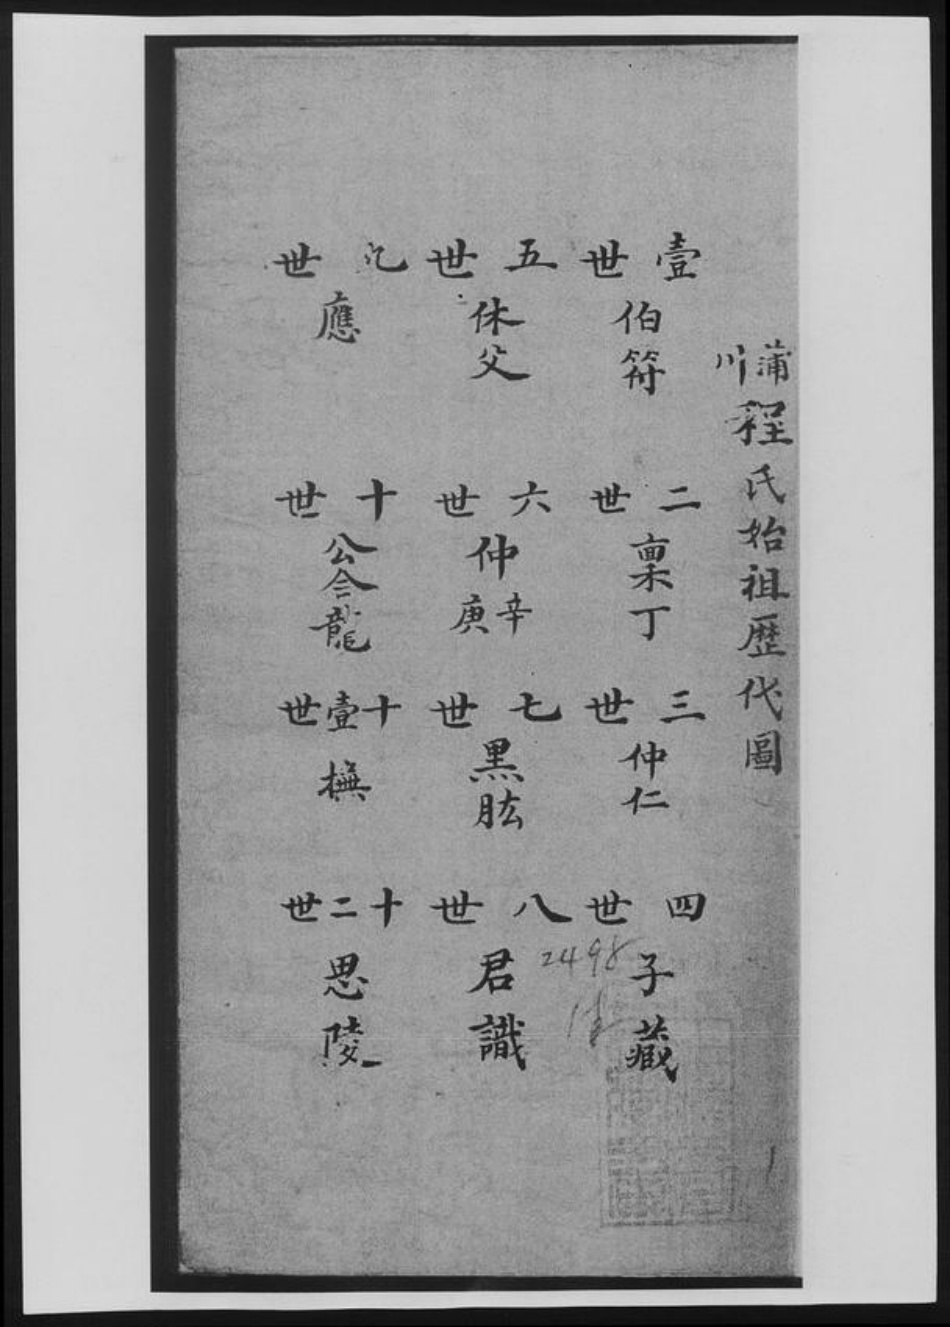 蒲川程氏始祖歷代圖
壹世
伯符
二世
稟丁
三世
仲仁
四世
子藏
五世
休父
六世
仲辛庚
七世
黑肱
八世
君識
九世
應
十世
公含龍
十壹世
橅
十二世
思陵
2498